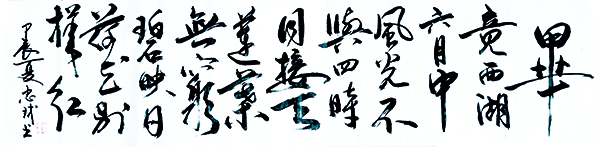 畢
竟西湖
六月中
風光不
與四時
同接天
蓮葉
無窮
碧映日
荷花別
樣紅
甲辰夏忠书